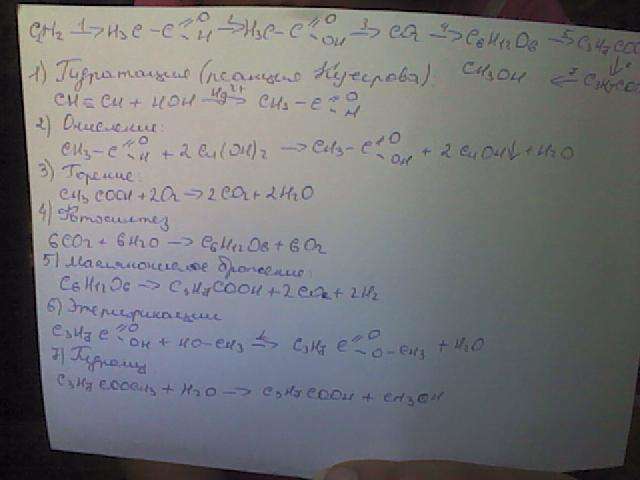 C2H2 1→ H3C – C =O H 2→ H3C – C =O OH 3→ CO2 4→ C6H12O6 5→ C3H7COO
↓6
CH3OH ←7 C3H7COO
1) Гидратация (реакция Кучерова):
CH≡CH + HOH Hg2+→ CH3 – C =O H
2) Окисление:
CH3 – C =O H + 2Cu(OH)2 → CH3 – C =O OH + 2CuOH↓ + H2O
3) Горение:
CH3COOH + 2O2 → 2CO2 + 2H2O
4) Фотосинтез
6CO2 + 6H2O → C6H12O6 + 6O2
5) Маслянокислое брожение:
C6H12O6 → C3H7COOH + 2CO2 + 2H2
6) Этерификации
C3H7 C =O OH + HO – CH3 ⇄ C3H7 C =O O – CH3 + H2O
7) Гидролиз
C3H7COOCH3 + H2O → C3H7COOH + CH3OH